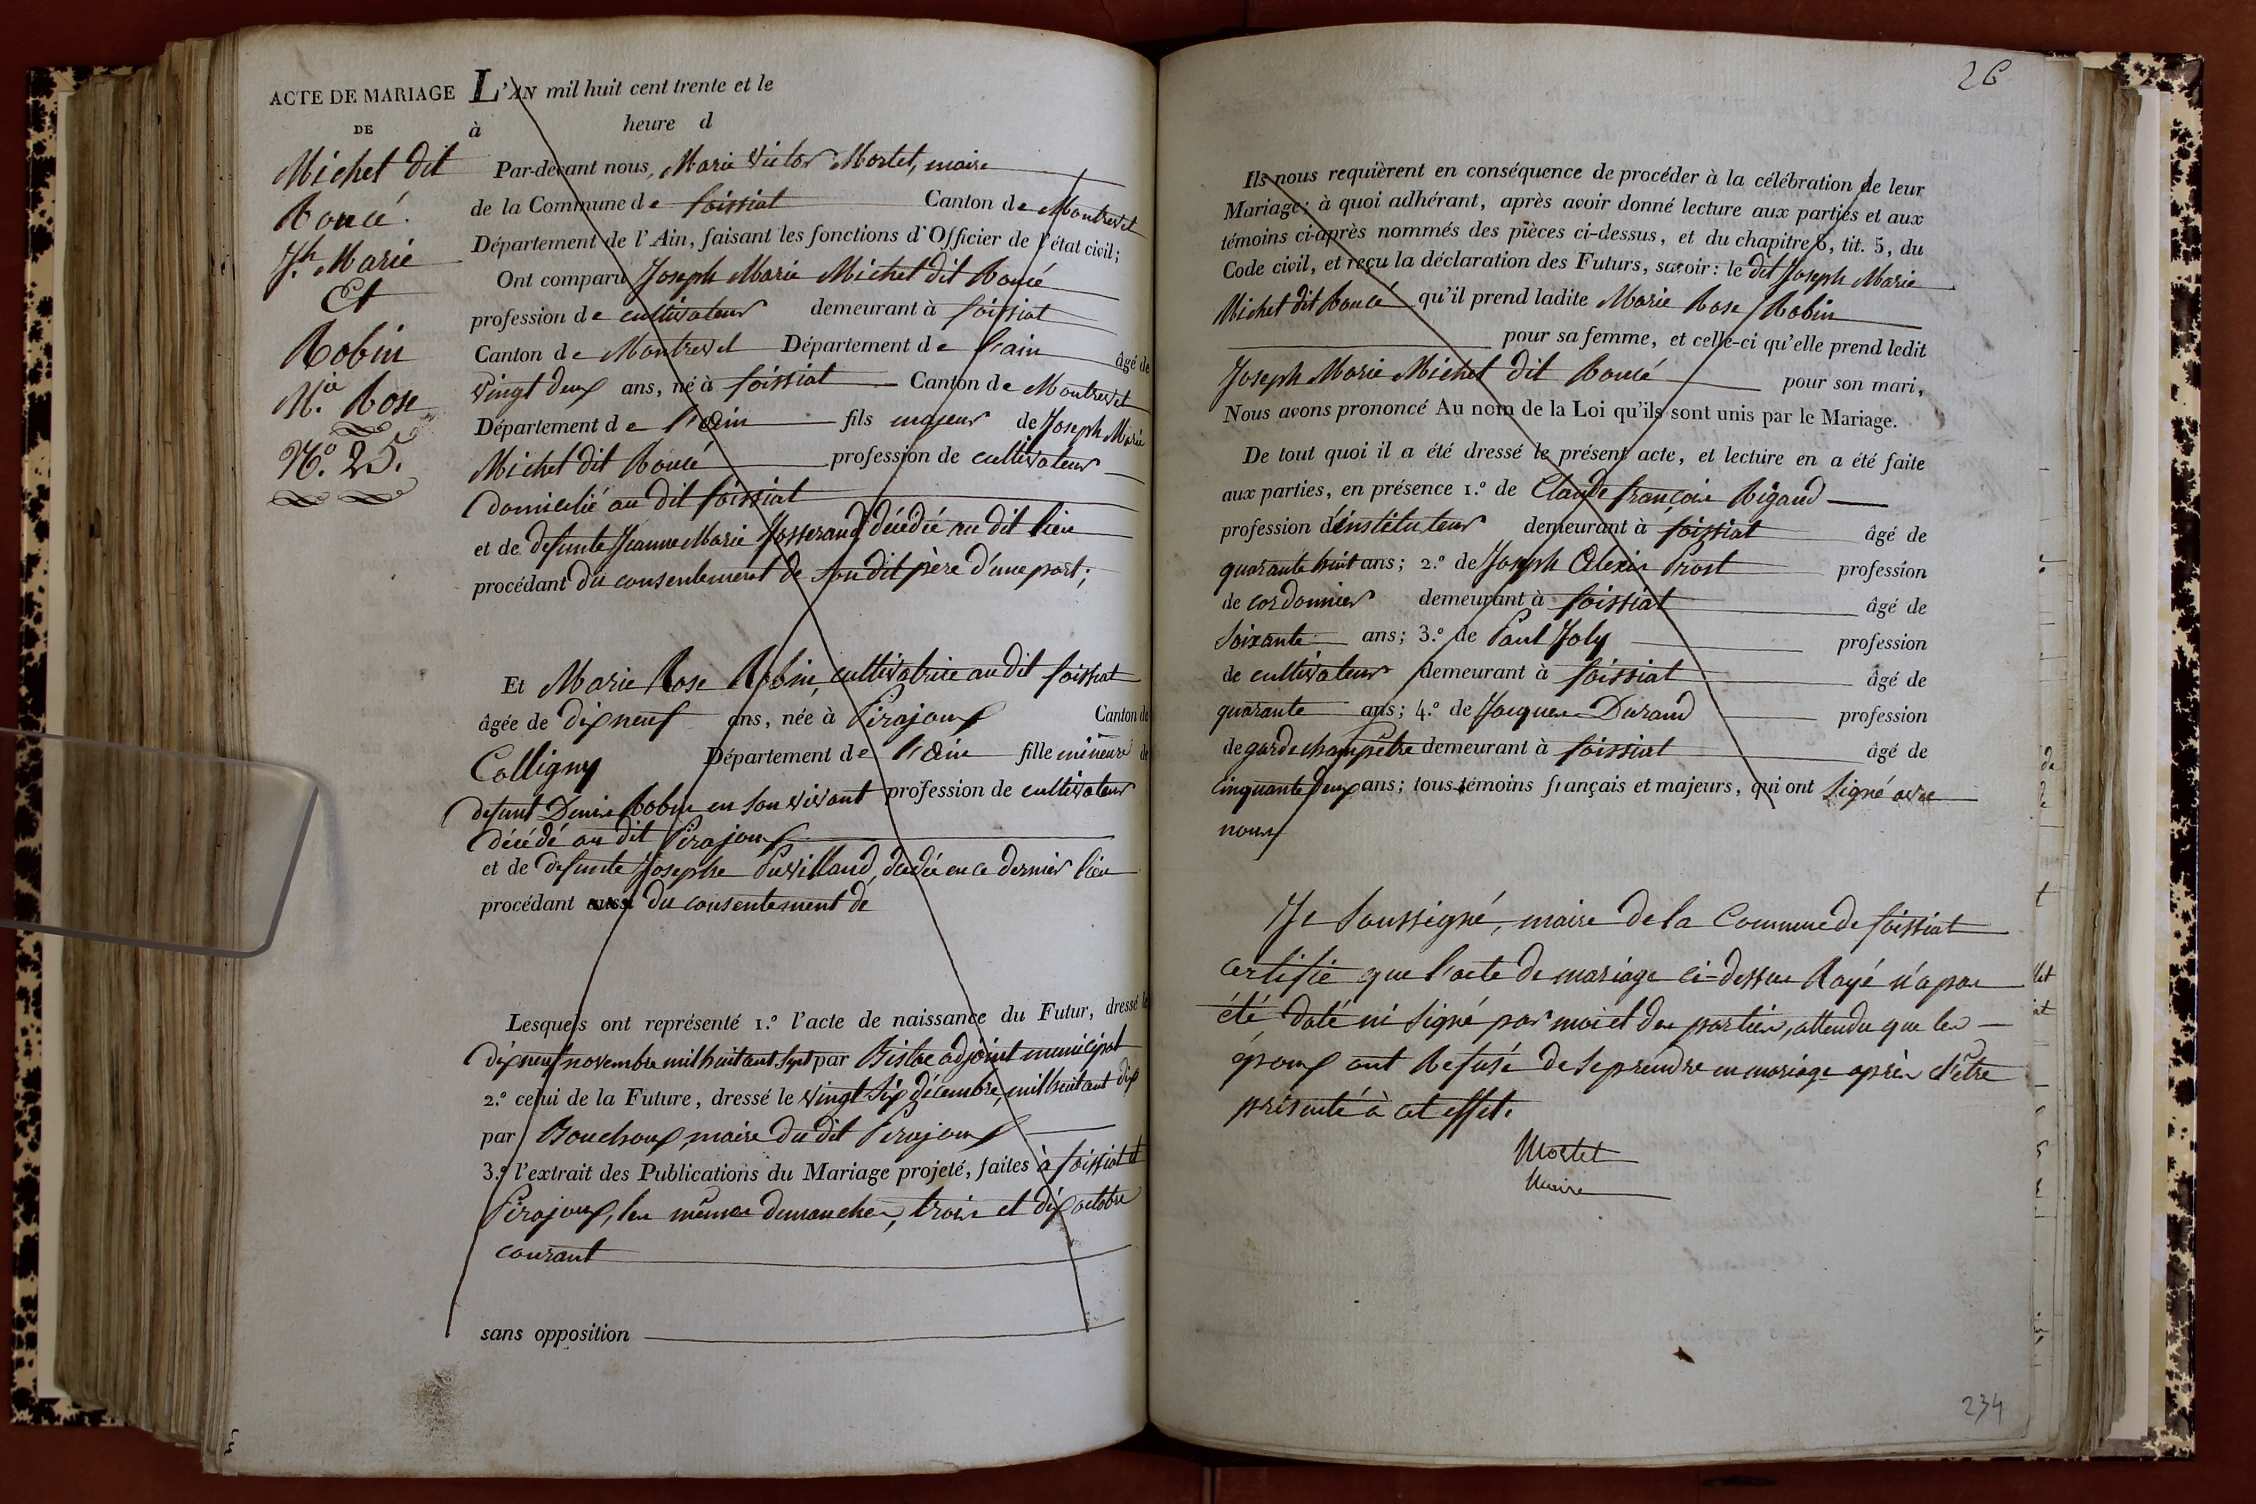 ACTE DE MARIAGE
DE
Michet dit
Roucé.
Jh. Marie
Et
Robin
M.ie Rose
N.o 25.
L'AN mil huit cent trente et le
à heure d
Par-devant nous, Marie Victor Mortet, maire
de la Commune de foissiat Canton de Montrevel
Département de l'Ain, faisant les fonctions d'Officier de l'état civil;
Ont comparu Joseph Marie Michet dit Roucé
profession de cultivateur demeurant à foissiat
Canton de Montrevel Département de l'ain âgé de
vingt deux ans, né à foissiat Canton de Montrevel
Département de l'ain fils majeur de Joseph Marie
Michet dit Roucé profession de cultivateur
domicilié au dit foissiat
et de defunte Jeanne Marie Josserand décédée au dit lieu
procédant du consentement de son dit père d'une part;
Et Marie Rose Robin, cultivatrice au dit foissiat
âgée de dix neuf ans, née à Pirajoux Canton de
Colligny Département de l'ain fille mineure de
defunt Denis Robin en son vivant profession de cultivateur
décédé au dit Pirajoux
et de defunte Josephe Puvilland, décédée en ce dernier lieu
procédant du consentement de
Lesquels ont représenté 1.º l'acte de naissance du Futur, dressé le
dix neuf novembre mil huit cent sept par Bistac adjoint municipal
2.º celui de la Future, dressé le vingt six décembre, mil huit cent dix
par Bouchoux, maire du dit Pirajoux
3.º l'extrait des Publications du Mariage projeté, faites à foissiat et
Pirajoux, les mêmes dimanches, trois et dix octobre
courant
sans opposition
26
Ils nous requièrent en conséquence de procéder à la célébration de leur
Mariage; à quoi adhérant, après avoir donné lecture aux parties et aux
témoins ci-après nommés des pièces ci-dessus, et du chapitre 6, tit. 5, du
Code civil, et reçu la déclaration des Futurs, savoir: le dit Joseph Marie
Michet dit Roucé qu'il prend ladite Marie Rose Robin
pour sa femme, et celle-ci qu'elle prend ledit
Joseph Marie Michet dit Roucé pour son mari,
Nous avons prononcé Au nom de la Loi qu'ils sont unis par le Mariage.
De tout quoi il a été dressé le présent acte, et lecture en a été faite
aux parties, en présence 1.º de Claude françois Rigaud
profession d'instituteur demeurant à foissiat âgé de
quarante huit ans; 2.º de Joseph Alexis Prost profession
de cordonnier demeurant à foissiat âgé de
soixante ans; 3.º de Paul Joly profession
de cultivateur demeurant à foissiat âgé de
quarante ans; 4.º de Jacques Durand profession
de garde champêtre demeurant à foissiat âgé de
cinquante deux ans; tous témoins français et majeurs, qui ont signé avec
nous
Je soussigné, maire de la Commune de foissiat
certifie que l'acte de mariage ci-dessus Rayé n'a pas
été daté ni signé par moi et des parties, attendu que les
époux ont Refusé de se prendre en mariage après s'être
présenté à cet effet.
Mortet
Maire
234